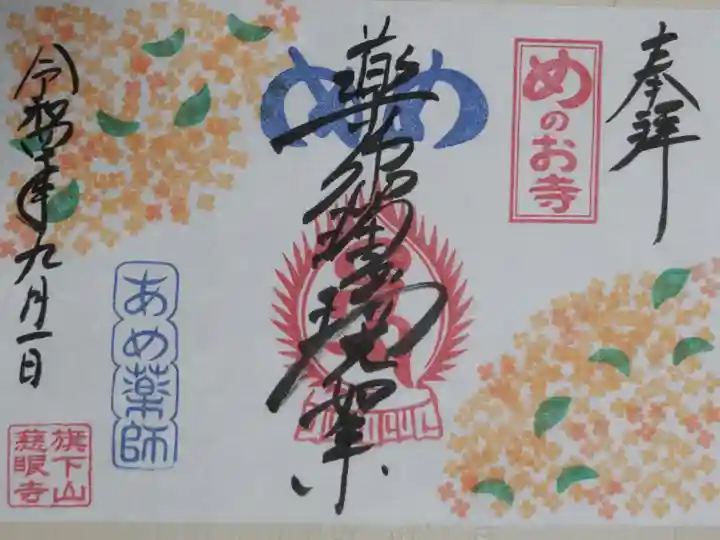 奉拝
めのお寺
薬師瑠璃光如来
め
あめ薬師
令和四年九月一日
旗下山
慈眼寺